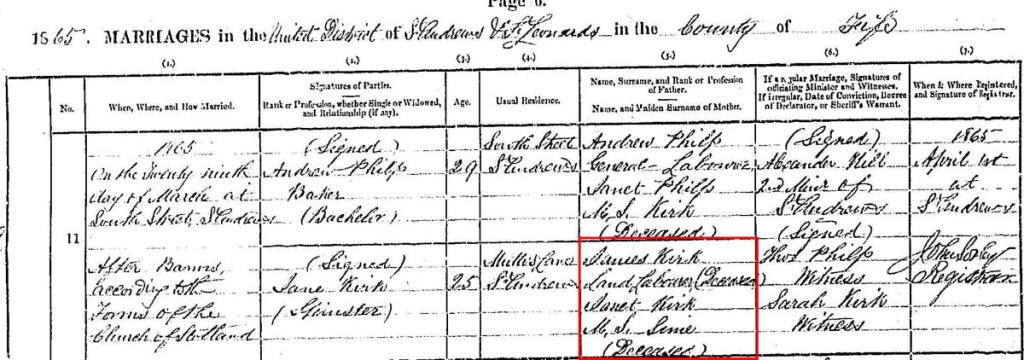 Page 6.
1865. MARRIAGES in the United District of St Andrews & St Leonards in the County of Fife
(1.) (2.) (3.) (4.) (5.) (6.) (7.)
No.
When, Where, and How Married.
Signatures of Parties.
Rank or Profession, whether Single or Widowed,
and Relationship (if any).
Age.
Usual Residence.
Name, Surname, and Rank or Profession
of Father.
Name, and Maiden Surname of Mother.
If a regular Marriage, Signatures of
officiating Minister and Witnesses.
If irregular, Date of Conviction, Decree
of Declarator, or Sheriff's Warrant.
When & Where Registered,
and Signature of Registrar.
11
1865
On the Twenty ninth
day of March at
South Street, St Andrews
After Banns,
according to the
Forms of the
Church of Scotland
(Signed)
Andrew Philp
Baker
(Bachelor)
(Signed)
Jane Kirk
(Spinster)
29
25
South Street
St Andrews
St Andrews
Andrew Philp
General Labourer
Janet Philp
M. S. Kirk
(Deceased)
James Kirk
Land Labourer (Deceased)
Janet Kirk
M. S. Sime
(Deceased)
(Signed)
Alexander Hill
2nd Minr of
St Andrews
(Signed)
Thos Philp
Witness
Sarah Kirk
Witness
1865
April 1st
at
St Andrews
John
Registrar